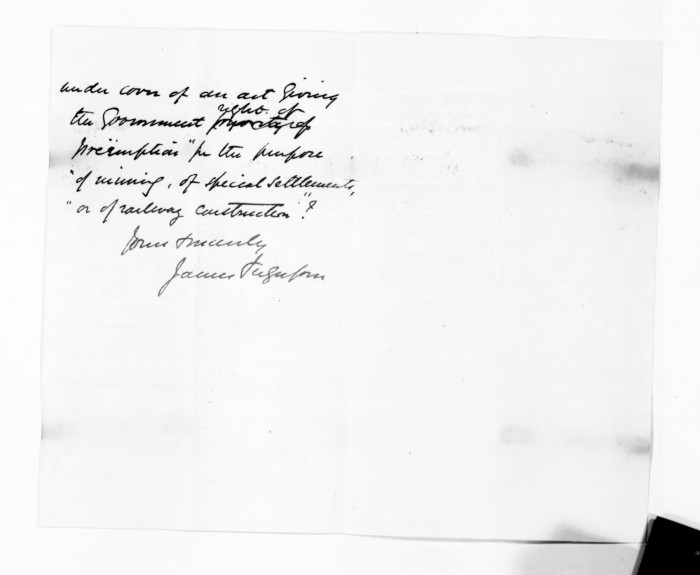 under cover of an act giving
right of
the Government
preëmption "for the purpose
"of mining, of special settlements,
"or of railway construction"?
Yours sincerely
James Fergusson